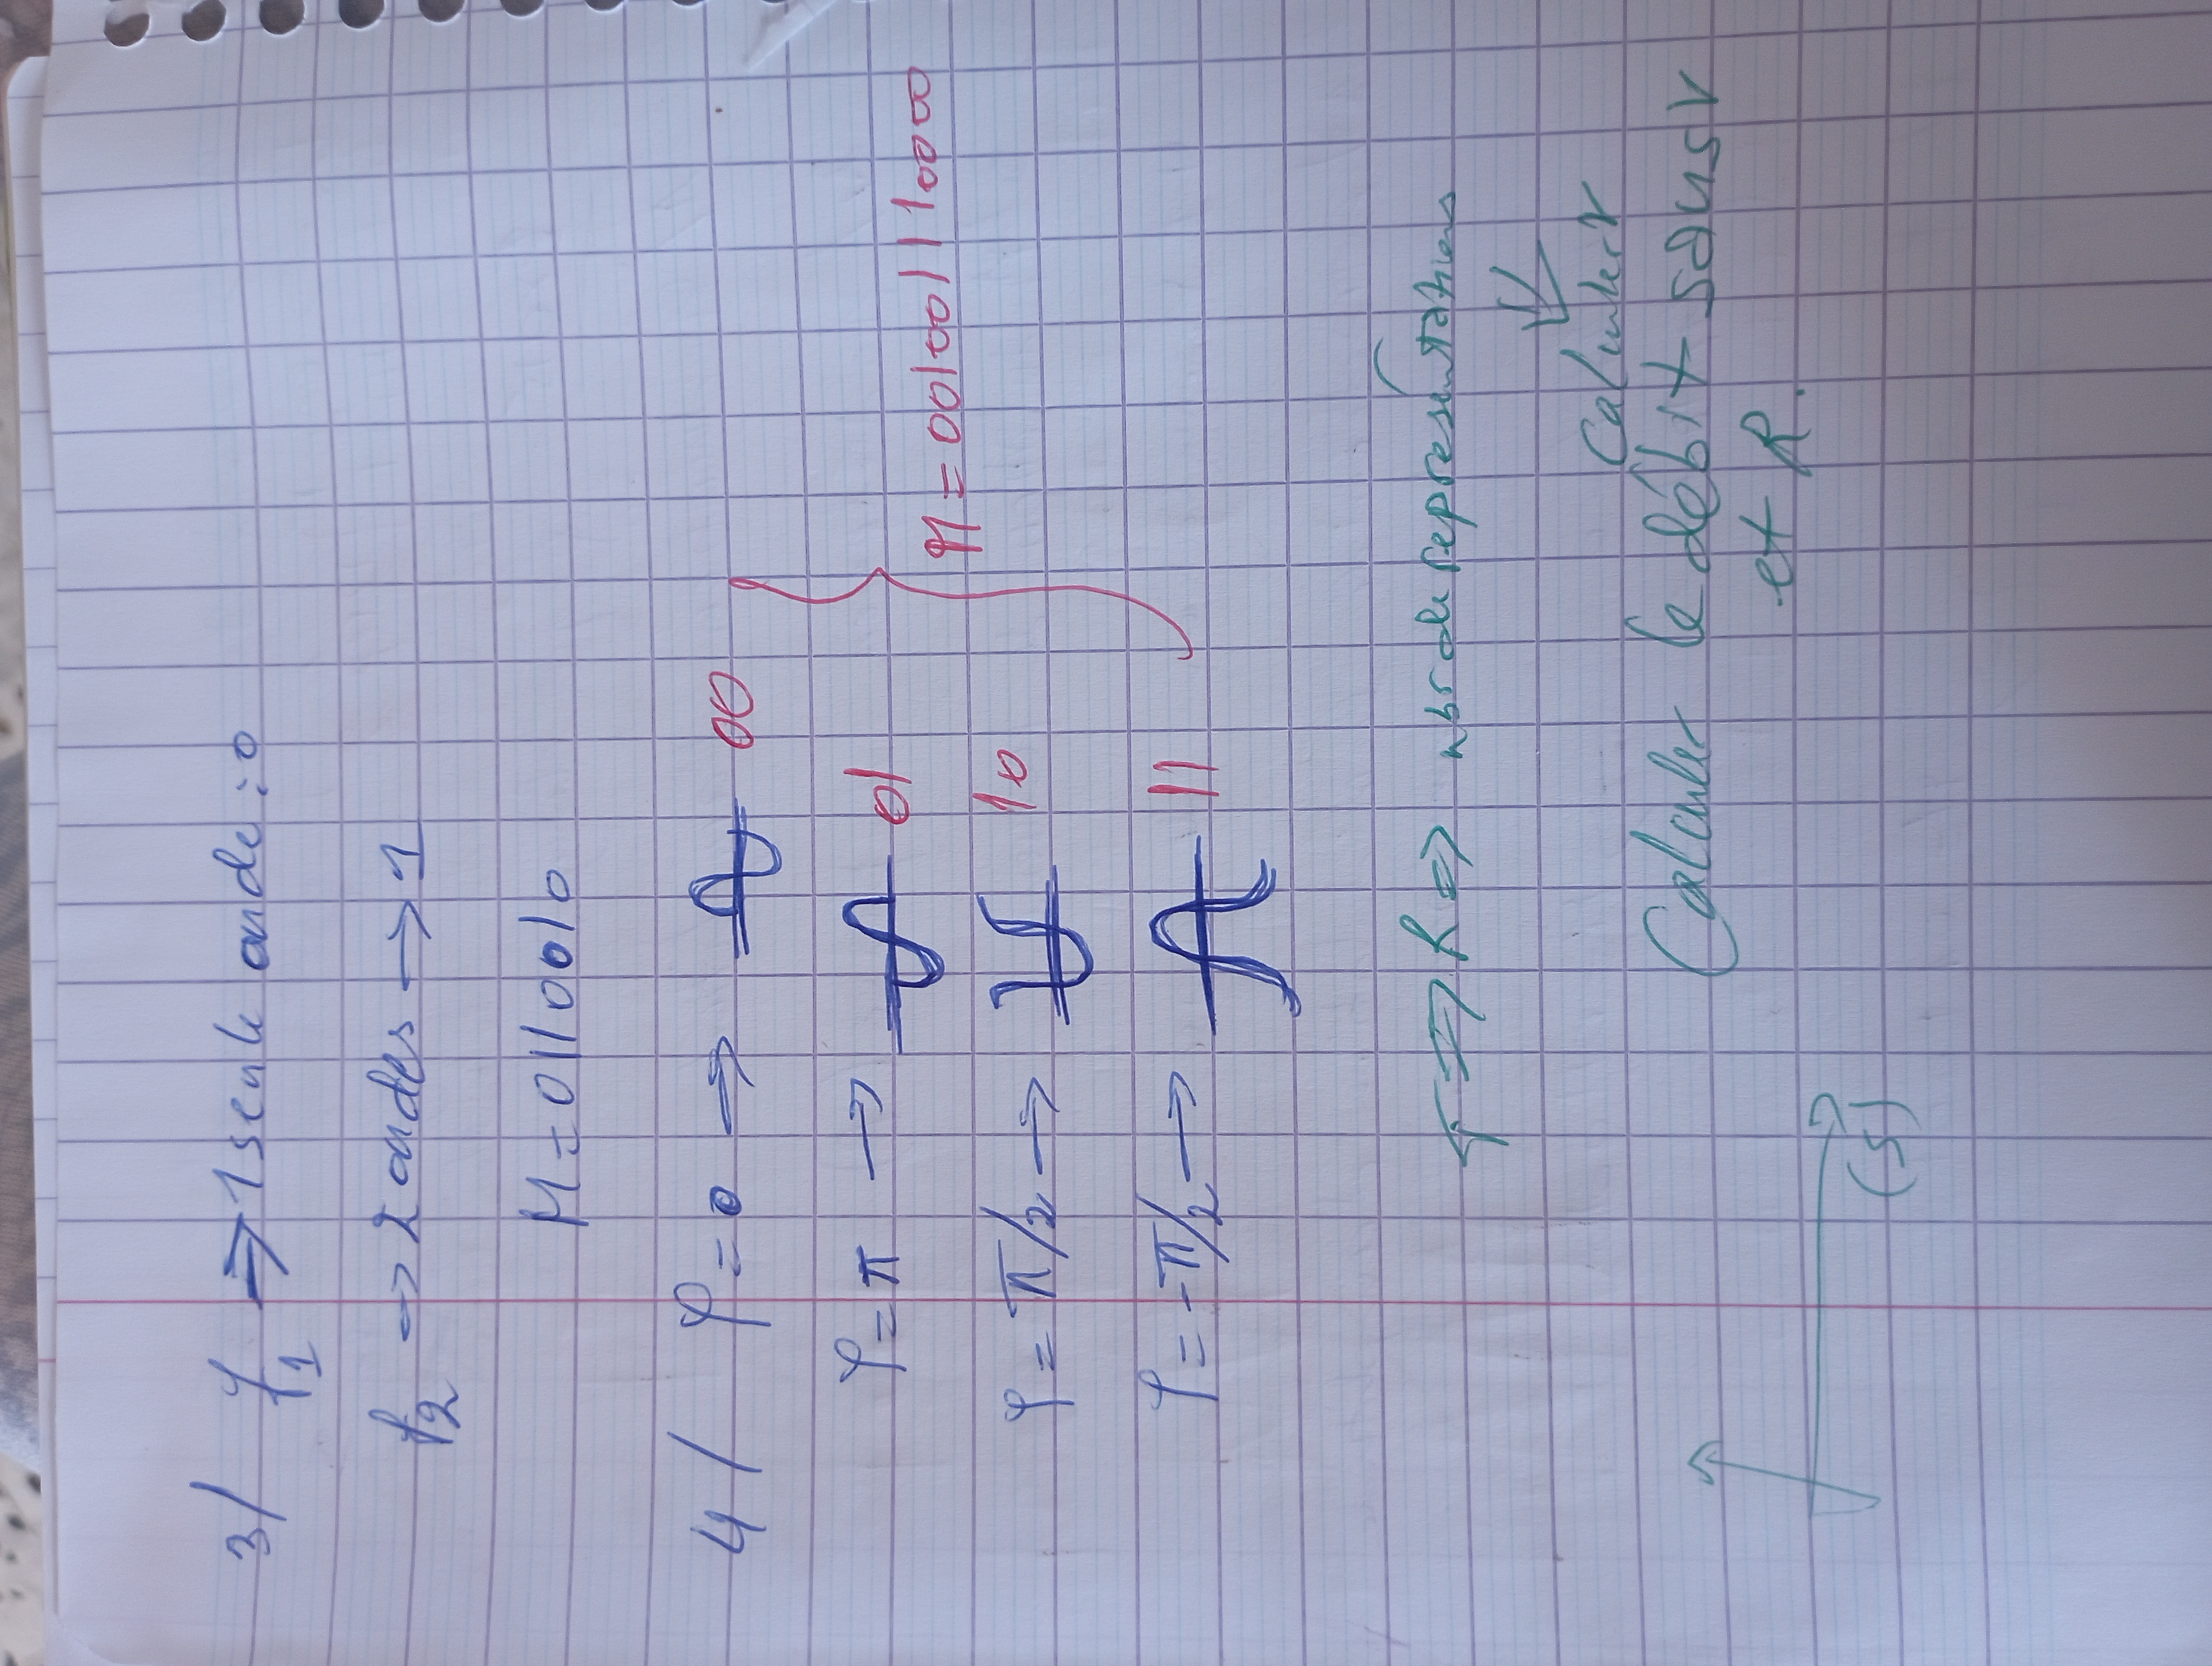 3/ f1 → 1 seule onde : 0
f2 → 2 ondes → 1
M = 01100010
4/ φ = 0 → 00
φ = π → 01
φ = π/2 → 10
φ = -π/2 → 11
M = 0010011110000
↑ ⇒ R ⇔ nbr de représentations
Calculer
Calculer le débit sans r
et R.
(s)